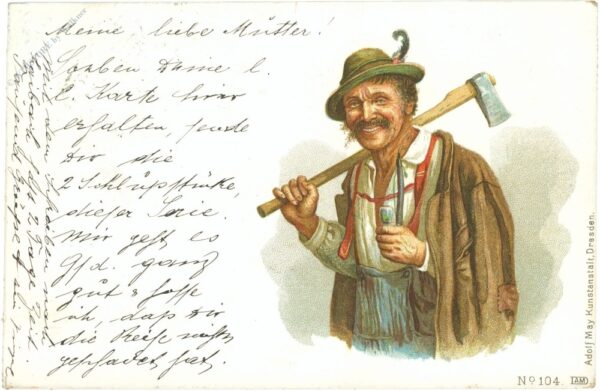 Meine liebe Mutter!
Soeben Deine l.
l. Karte hier
erhalten, sende
Dir die
2 Schlußstücke,
dieser Serie.
Mir geht es
Gsd. ganz
gut & hoffe
ich, daß Dir
die Reise nichts
geschadet hat.
Adolf May Kunstanstalt, Dresden.
No 104. AM